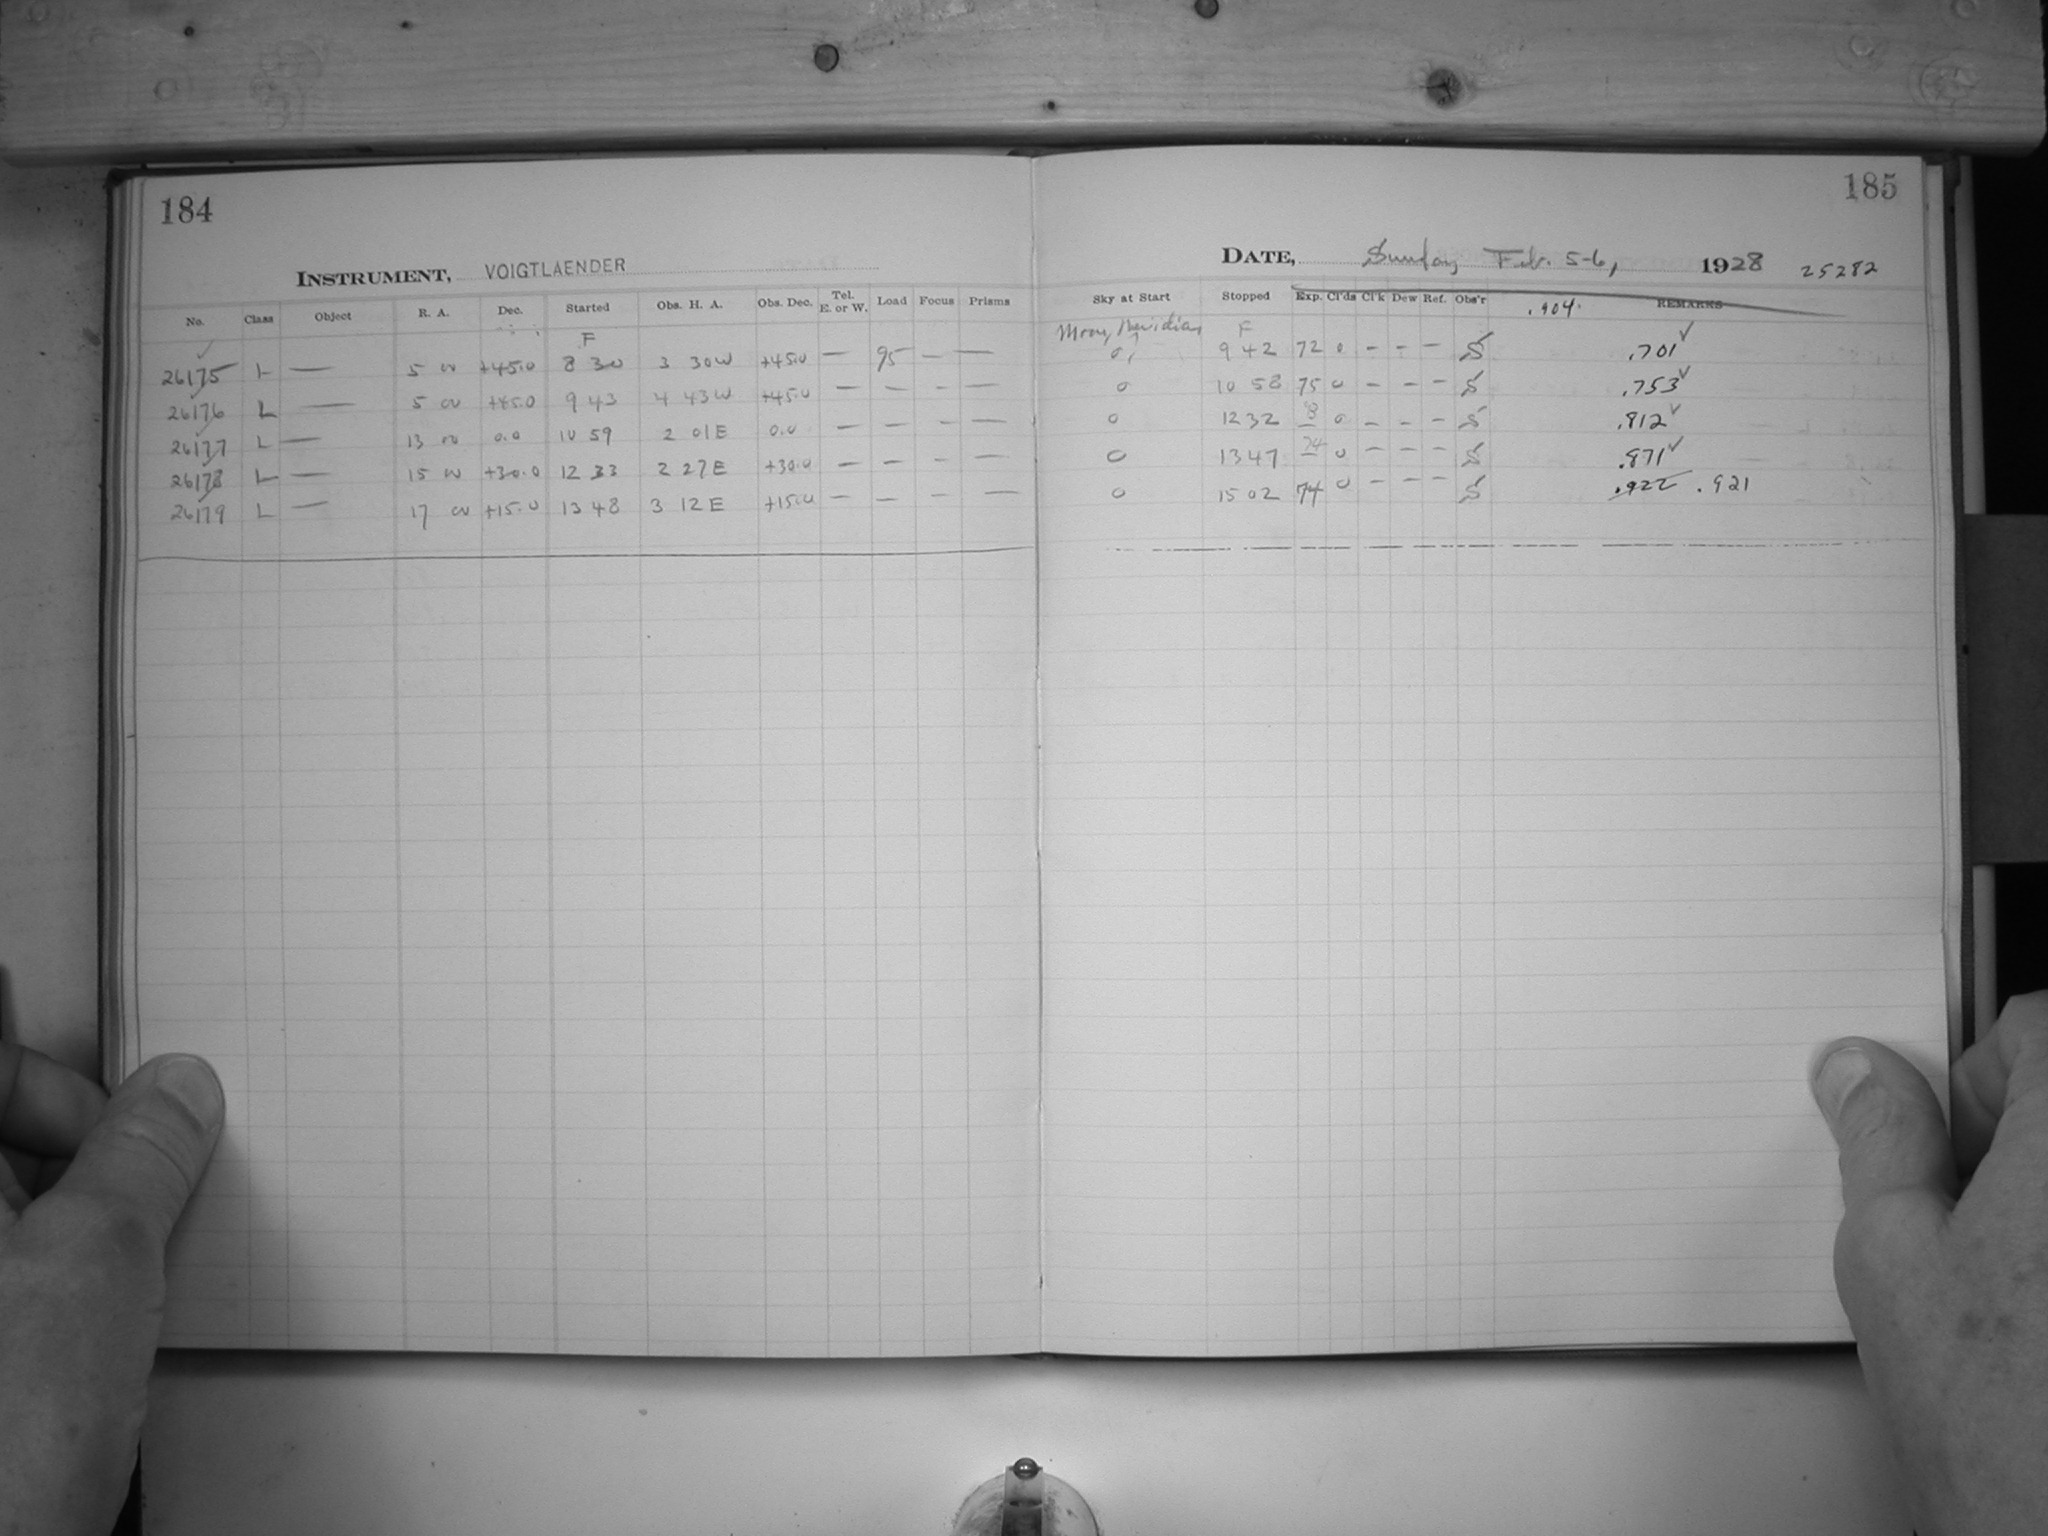 184
INSTRUMENT, VOIGTLAENDER
No. Class Object R. A. Dec. Started Obs. H. A. Obs. Dec. Tel. E. or W. Load Focus Prisms
F
26175 L — 5 00 +45.0 8 30 3 30W +45.0 — 95 — —
26176 L — 5 00 +45.0 9 43 4 43W +45.0 — — - —
26177 L — 13 00 0.0 10 59 2 01E 0.0 — — - —
26178 L — 15 00 +30.0 12 33 2 27E +30.0 — — - —
26179 L — 17 00 +15.0 13 48 3 12E +15.0 — — - —
185
DATE, Sunday Feb. 5-6, 1928 25282
Sky at Start Stopped Exp. Cl'ds Cl'k Dew Ref. Obs'r .904. REMARKS
Meridian F
0, 9 42 72 0 - - - S .701 ✓
0 10 58 75 0 - - - S .753 ✓
0 12 32 0 - - - S .812 ✓
0 13 47 74 0 - - - S .871 ✓
0 15 02 74 0 - - - S .922 .921